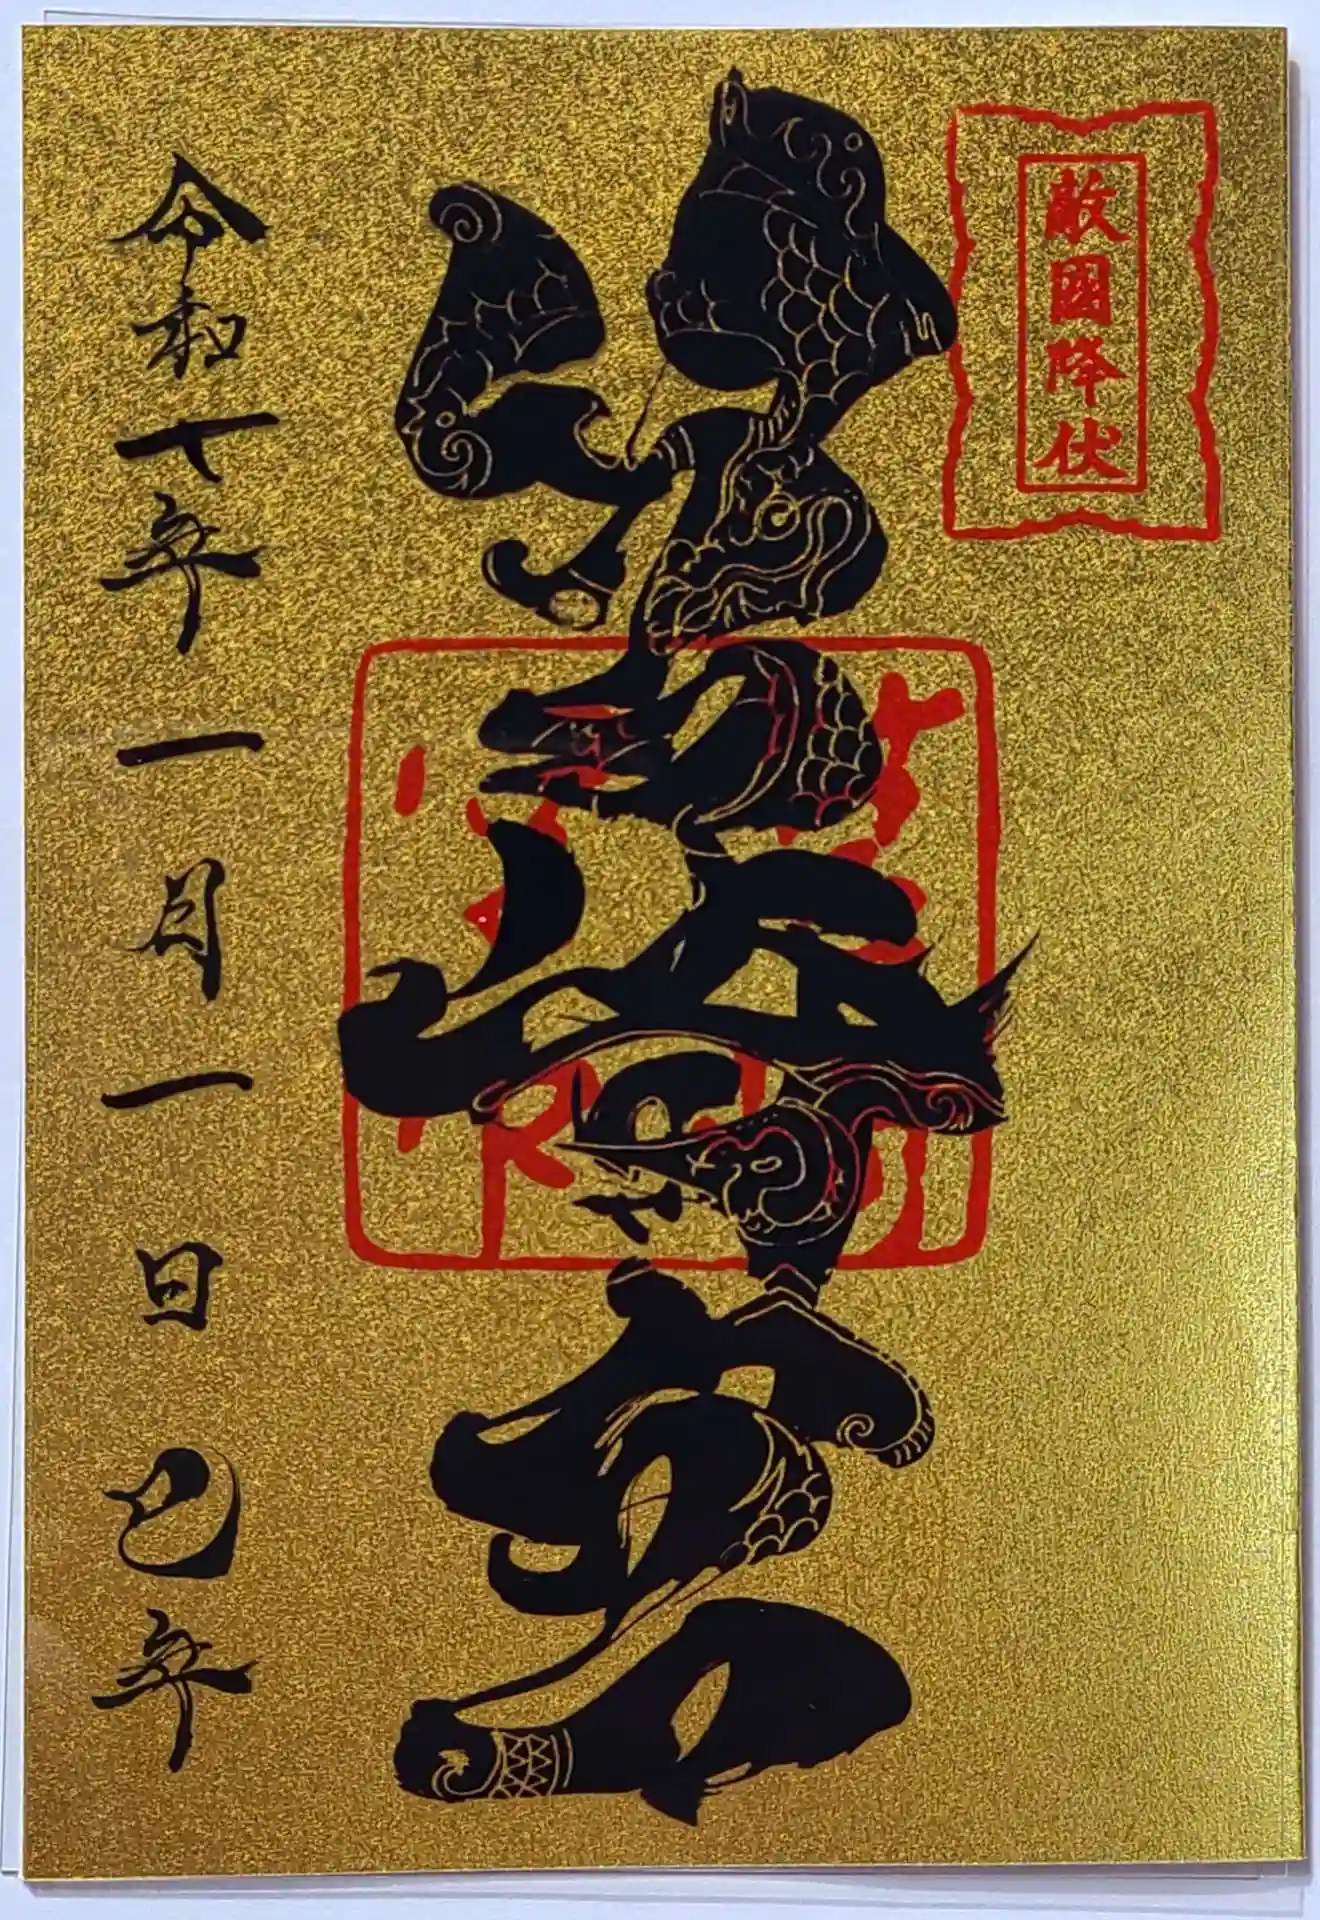 敵國降伏
筥崎宮
令和七年一月一日巳年